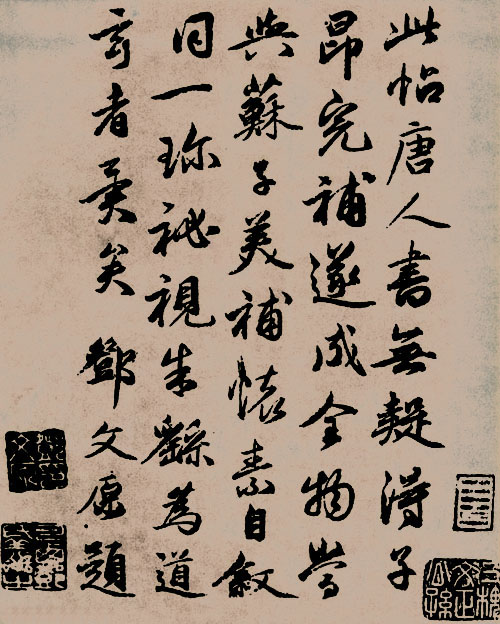 此帖唐人書無疑得子
昂完補遂成全物當
與蘇子美補懷素自敘
同一珎祕視朱繇為道
玄者異矣 鄧文原題